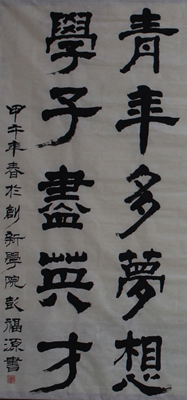 青年多夢想
學子盡英才
甲午年春於創新學院彭福源書